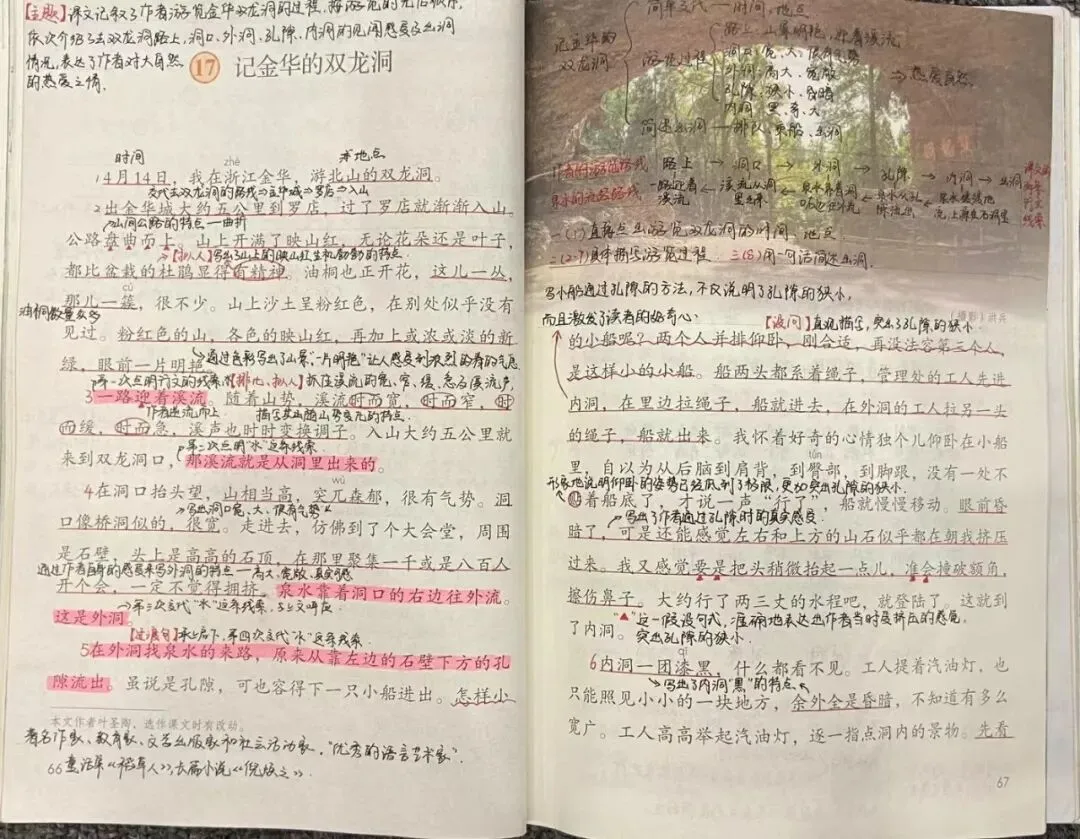 【主题】课文记叙了作者游览金华双龙洞的过程，按游览的先后顺序，
依次介绍了去双龙洞路上、洞口、外洞、孔隙、内洞的见闻感受及出洞
情况，表达了作者对大自然
的热爱之情。
17 记金华的双龙洞
时间
zhè
地点
1 4月14日，我在浙江金华，游北山的双龙洞。
交代去双龙洞的路线⇒金华城⇒罗店⇒入山
2 出金华城大约五公里到罗店，过了罗店就渐渐入山。
山间公路的特点—曲折
公路盘曲而上。山上开满了映山红，无论花朵还是叶子，
【拟人】写出了山上的映山红生机勃勃的特点
都比盆栽的杜鹃显得有精神。油桐也正开花，这儿一丛，
cù
那儿一簇，很不少。山上沙土呈粉红色，在别处似乎没有
油桐数量众多
见过。粉红色的山，各色的映山红，再加上或浓或淡的新
绿，眼前一片明艳。
通过色彩写出了山景，"一片明艳"让人感受到浓烈的春的气息
第一次点明行文的线索，【排比、拟人】抓住溪流的宽、窄、缓、急与溪流声，
3 一路迎着溪流。随着山势，溪流时而宽，时而窄，时
作者逆流而上
描写其出随山势变化的特点
而缓，时而急，溪声也时时变换调子。入山大约五公里就
第二次点明"水"这条线索
来到双龙洞口，那溪流就是从洞里出来的。
wù
4 在洞口抬头望，山相当高，突兀森郁，很有气势。洞
写出洞口宽、大、很有气势
口像桥洞似的，很宽。走进去，仿佛到了个大会堂，周围
是石壁，头上是高高的石顶，在那里聚集一千或是八百人
通过作者自身的感受来写外洞的特点—高大、宽敞，真实可感
开个会，一定不觉得拥挤。泉水靠着洞口的右边往外流。
第三次交代"水"这条线索，与上文呼应
这是外洞
【过渡句】承上启下，第四次交代"水"这条线索
5 在外洞找泉水的来路，原来从靠左边的石壁下方的孔
隙流出。虽说是孔隙，可也容得下一只小船进出。怎样小
本文作者叶圣陶，选作课文时有改动。
著名作家、教育家、文学出版家和社会活动家，"优秀的语言艺术家"
66 童话集《稻草人》，长篇小说《倪焕之》
记金华的
双龙洞
简单交代—时间、地点
游览过程
路上：山景明艳，迎着溪流
洞口：宽、大、很有气势
外洞：高大、宽敞
孔隙：狭小、昏暗
内洞：黑、奇、大
⇒热爱自然
简述出洞—排队、乘船、出洞
作者的游览路线 路上→洞口→外洞→孔隙→内洞→出洞
泉水的流经路线 一路迎着溪流←溪流从洞里出来←泉水靠着洞口右边往外流←泉水从孔隙流出←
一(1)直接点出游览双龙洞的时间、地点
二(2-7)具体描写游览过程 三(8)用一句话简述出洞.
写小船通过孔隙的方法，不仅说明了孔隙的狭小，
而且激发了读者的好奇心.
【设问】直观描写，突出了孔隙的狭小
的小船呢？两个人并排仰卧，刚合适，再没法容第三个人，
是这样小的小船。船两头都系着绳子，管理处的工人先进
内洞，在里边拉绳子，船就进去，在外洞的工人拉另一头
的绳子，船就出来。我怀着好奇的心情独个儿仰卧在小船
tún
里，自以为从后脑到肩背，到臀部，到脚跟，没有一处不
形象地说明仰卧的姿势已经低到了极限，更加突出孔隙的狭小.
贴着船底了，才说一声"行了"，船就慢慢移动。眼前昏
写出了作者通过孔隙时的真实感受
暗了，可是还能感觉左右和上方的山石似乎都在朝我挤压
过来。我又感觉要是把头稍微抬起一点儿，准会撞破额角，
擦伤鼻子。大约行了两三丈的水程吧，就登陆了。这就到
"▲"这一假设句式，准确地表达出作者当时受挤压的感觉
了内洞。 突出孔隙的狭小
qī
6 内洞一团漆黑，什么都看不见。工人提着汽油灯，也
写出了内洞"黑"的特点
只能照见小小的一块地方，余外全是昏暗，不知道有多么
宽广。工人高高举起汽油灯，逐一指点洞内的景物。先看
67